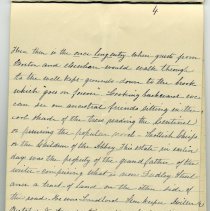 4
Here then is the once long entry when guests from
Boston and elsewhere would walk through
to the well kept grounds down to the brook
which "goes on forever". Looking backward we
can see our ancestral friends sitting in the
cool shade of the trees reading the Centinel
or perusing the popular novel - Scottish Chiefs
or the Children of the Abbey. This estate in earlier
days was the property of the grandfather of the
writer - comprising what is now Findley Street
once a tract of land on the other side of
the road. He was Landlord, Inn keeper,